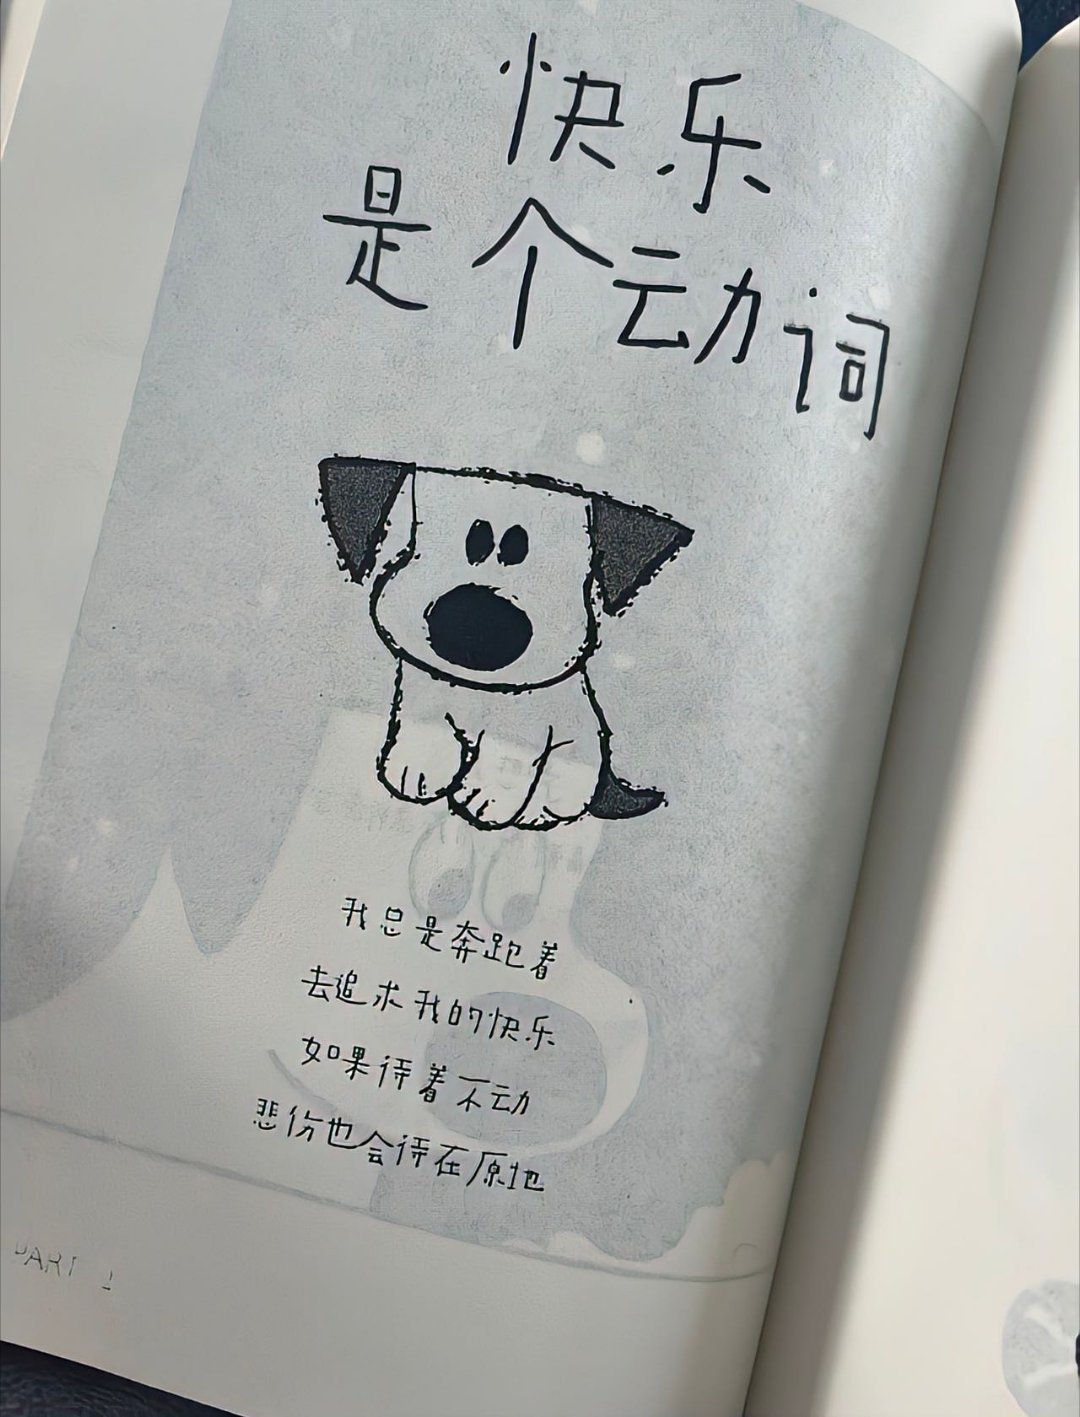 快乐
是个动词
我总是奔跑着
去追求我的快乐
如果待着不动
悲伤也会待在原地
PART 1